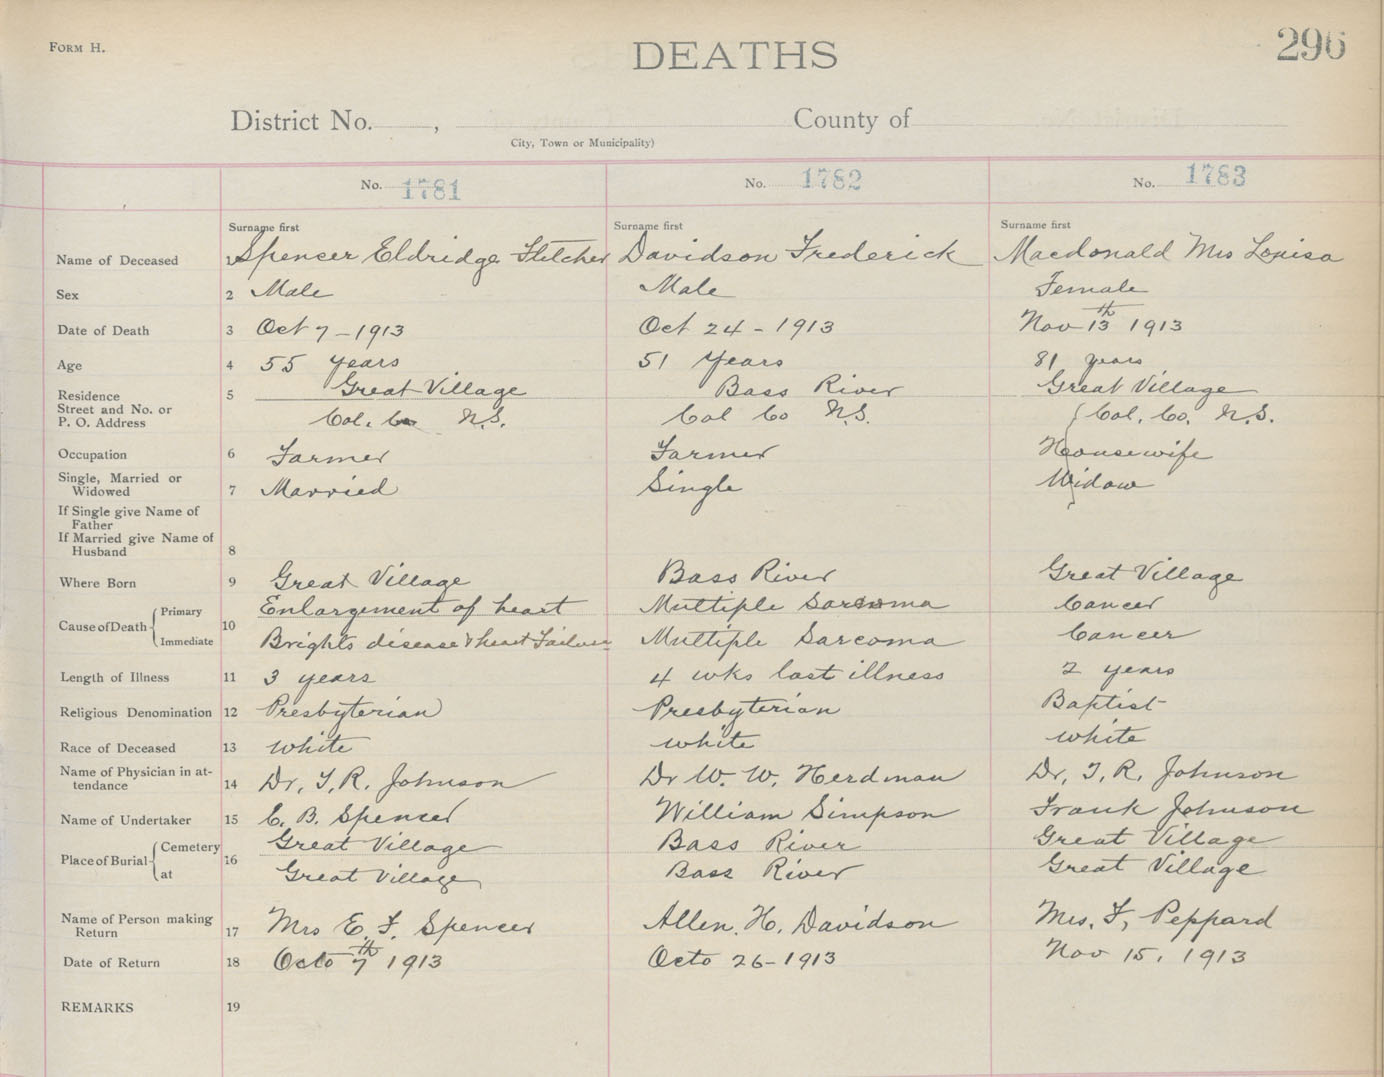 FORM H.
DEATHS
296
District No. , County of
City, Town or Municipality)
No. 1781 No. 1782 No. 1783
Surname first Surname first Surname first
Name of Deceased 1 Spencer Eldridge Fletcher Davidson Frederick Macdonald Mrs Louisa
Sex 2 Male Male Female
Date of Death 3 Oct 7 - 1913 Oct 24 - 1913 Nov 13th 1913
Age 4 55 years 51 Years 81 years
Residence 5 Great Village Bass River Great Village
Street and No. or
P. O. Address Col. Co N.S. Col Co N.S. Col. Co. N.S.
Occupation 6 Farmer Farmer Housewife
Single, Married or
Widowed 7 Married Single Widow
If Single give Name of
Father
If Married give Name of
Husband 8
Where Born 9 Great Village Bass River Great Village
Cause of Death 10 Primary Enlargement of heart Multiple Sarcoma Cancer
Immediate Brights disease & heart Failure Multiple Sarcoma Cancer
Length of Illness 11 3 years 4 wks last illness 2 years
Religious Denomination 12 Presbyterian Presbyterian Baptist
Race of Deceased 13 white white white
Name of Physician in at-
tendance 14 Dr. T. R. Johnson Dr W. W. Herdman Dr. T. R. Johnson
Name of Undertaker 15 C. B. Spencer William Simpson Frank Johnson
Place of Burial 16 Cemetery Great Village Bass River Great Village
at Great Village Bass River Great Village
Name of Person making
Return 17 Mrs E. F. Spencer Allen. H. Davidson Mrs. F. Peppard
Date of Return 18 Octo 7th 1913 Octo 26 - 1913 Nov 15, 1913
REMARKS 19